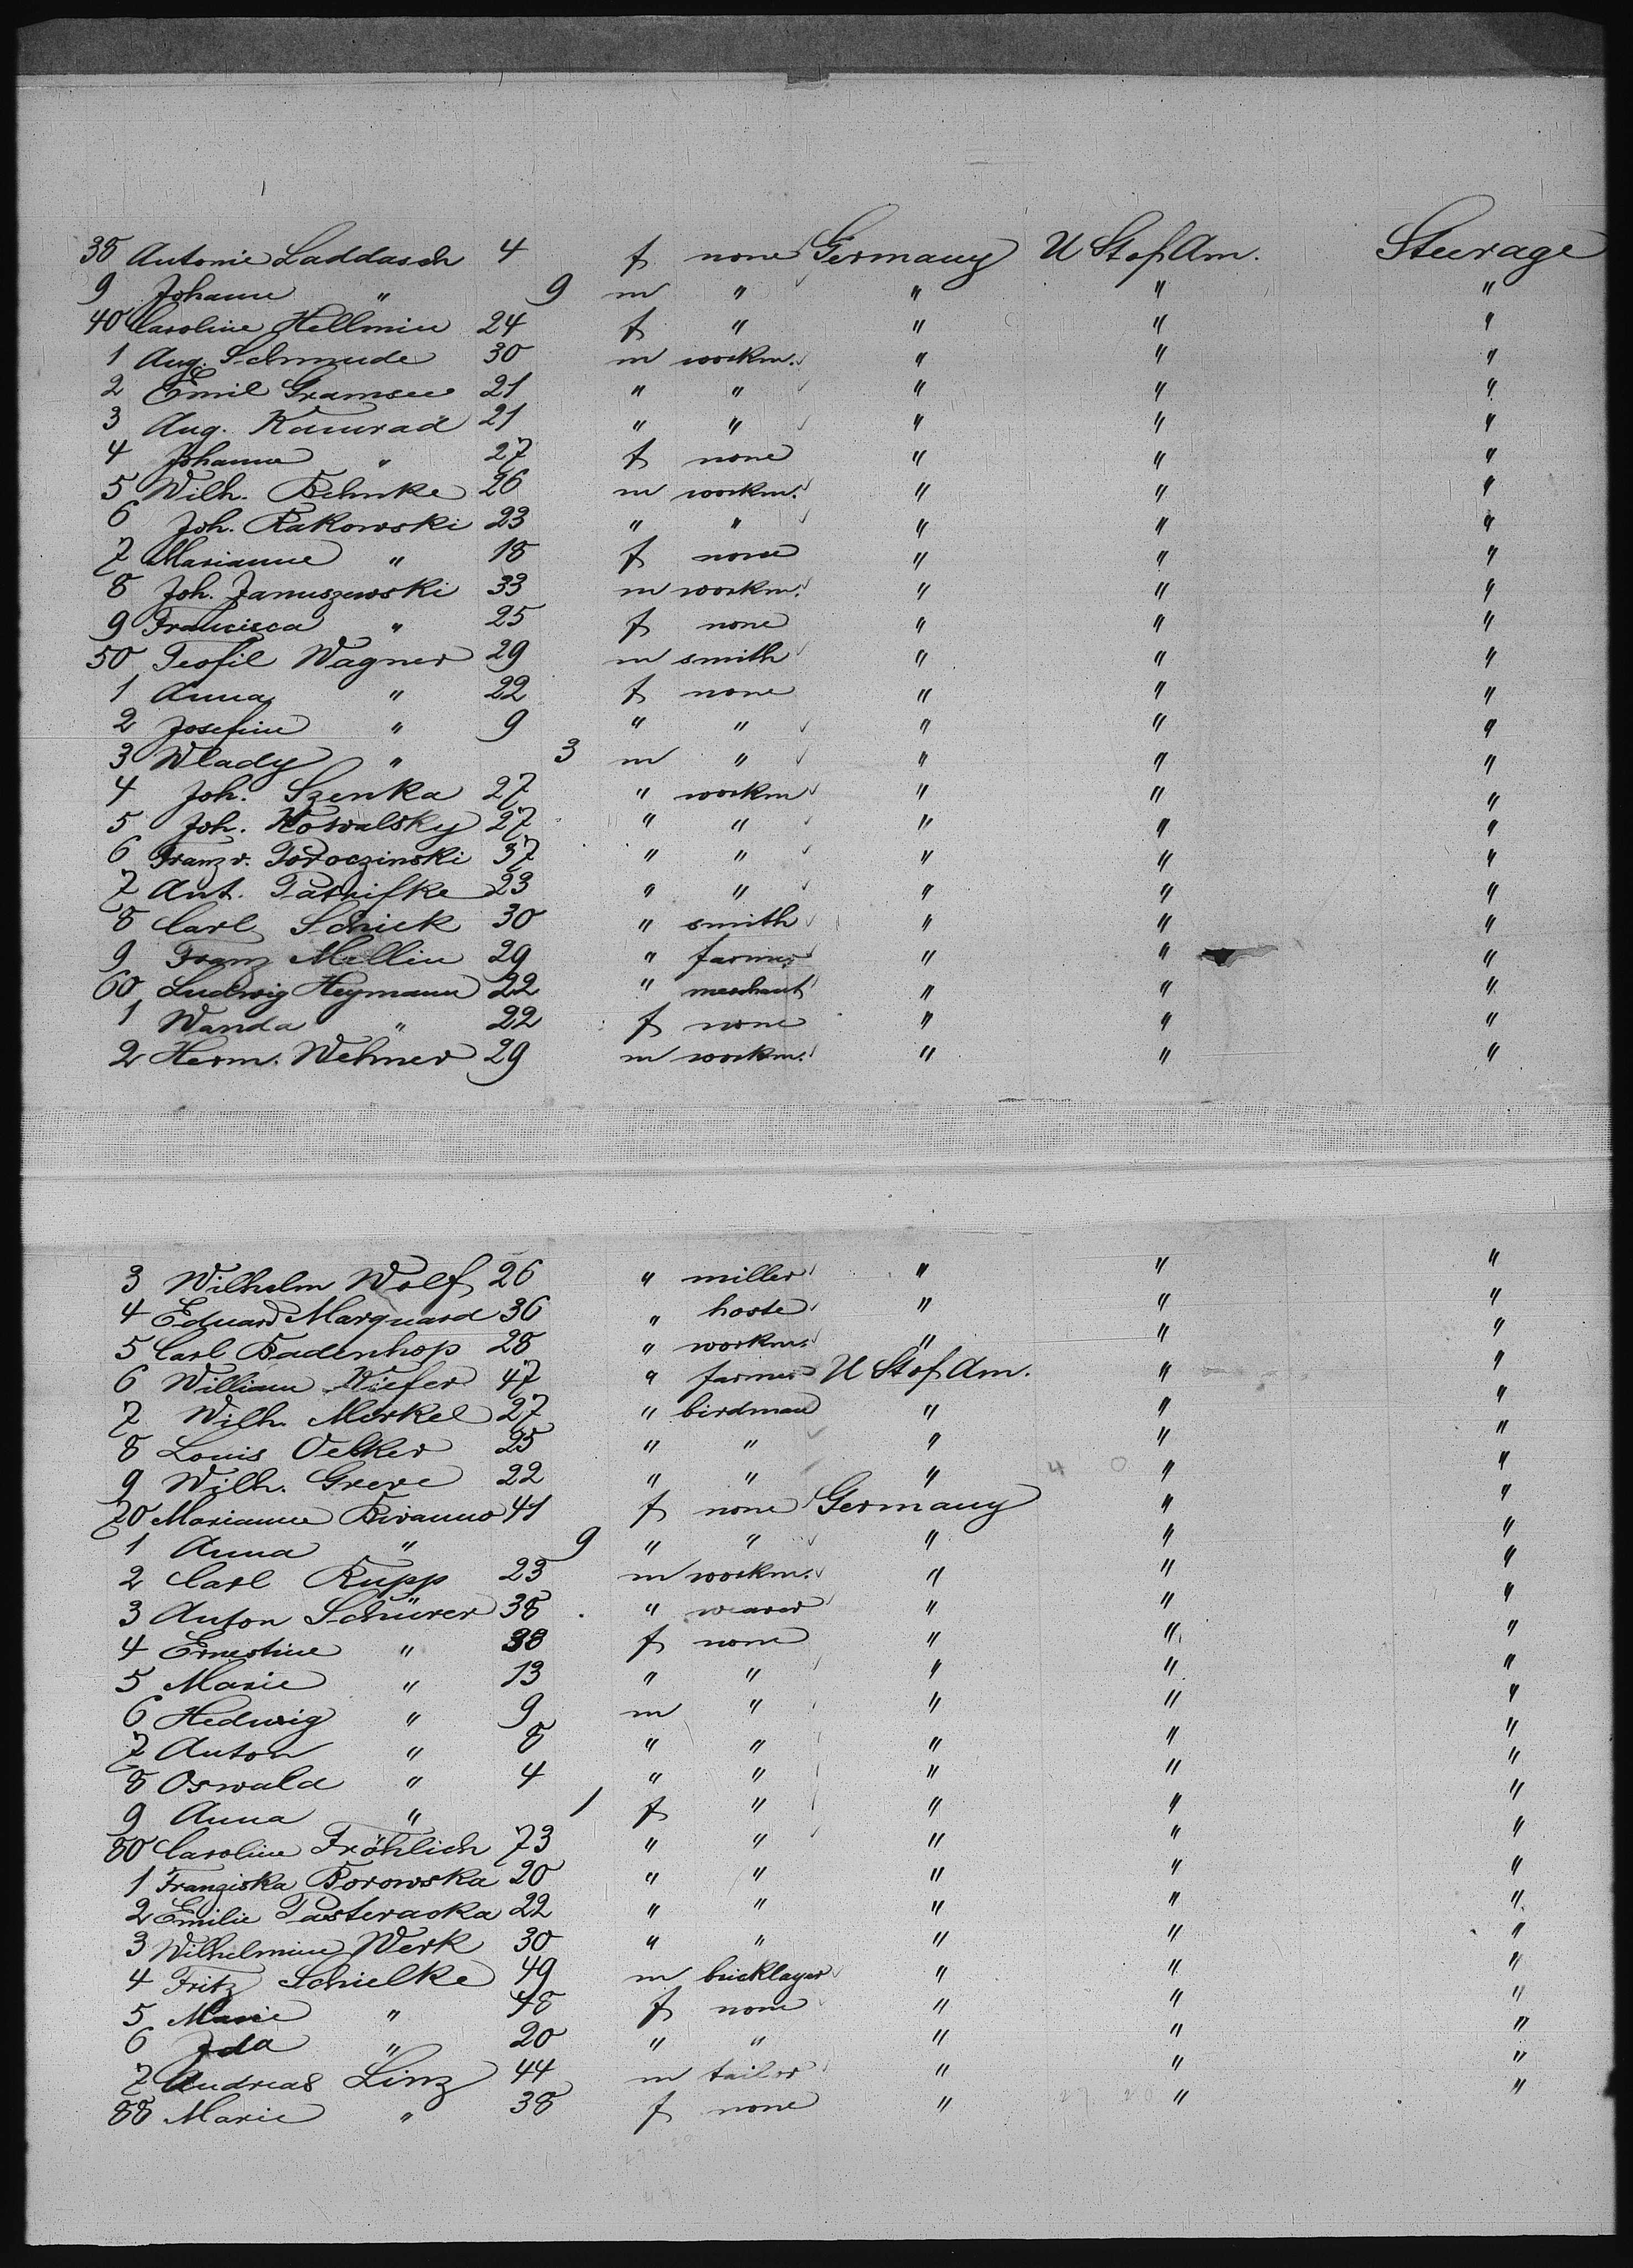 38 Antonie Laddasch 4 f none Germany U St of Am. Steerage
9 Johann " 9 m " " " "
40 Caroline Hellmin 24 f " " " "
1 Aug. Schmude 30 m workm. " " "
2 Emil Gramsee 21 " " " " "
3 Aug. Kunrad 21 " " " " "
4 Johanna " 27 f none " " "
5 Wilh. Behnke 26 m workm. " " "
6 Joh. Rakowski 23 " " " " "
7 Marianne " 18 f none " " "
8 Joh. Januszewski 33 m workm. " " "
9 Francisca " 25 f none " " "
50 Teofil Wagner 29 m smith " " "
1 Anna " 22 f none " " "
2 Josefine " 9 " " " " "
3 Wlady " 3 m " " " "
4 Joh. Szenka 27 " workm " " "
5 Joh. Kowalsky 27 " " " " "
6 Franz v. 37 " " " " "
7 Ant. 23 " " " " "
8 Carl Schick 30 " smith " " "
9 Franz Mellin 29 " farmer " " "
60 Ludwig Heymann 22 " merchant " " "
1 Wanda " 22 f none " " "
2 Herm. Wehner 29 m workm. " " "
3 Wilhelm Wolf 26 " miller " " "
4 Eduard Marquard 36 " hoste " " "
5 Carl Badenhop 28 " workm. " " "
6 William Kiefer 47 " farmer U St of Am. " "
7 Wilh. Merkel 27 " birdman " " "
8 Louis Oelker 25 " " " " "
9 Wilh. Greve 22 " " " " "
70 Marianne 41 f none Germany " "
1 Anna " 9 " " " " "
2 Carl Rupp 23 m workm. " " "
3 Anton Schürer 38 " weaver " " "
4 Ernestine " 38 f none " " "
5 Marie " 13 " " " " "
6 Hedwig " 9 m " " " "
7 Anton " 8 " " " " "
8 Oswald " 4 " " " " "
9 Anna " 1 f " " " "
80 Caroline Fröhlich 73 " " " " "
1 Franziska Borowska 20 " " " " "
2 Emilie Pasteracka 22 " " " " "
3 Wilhelmine Werk 30 " " " " "
4 Fritz Schielke 49 m bricklayer " " "
5 Marie " 48 f none " " "
6 Ida " 20 " " " " "
7 Andreas Linz 44 m tailor " " "
88 Marie " 38 f none " " "